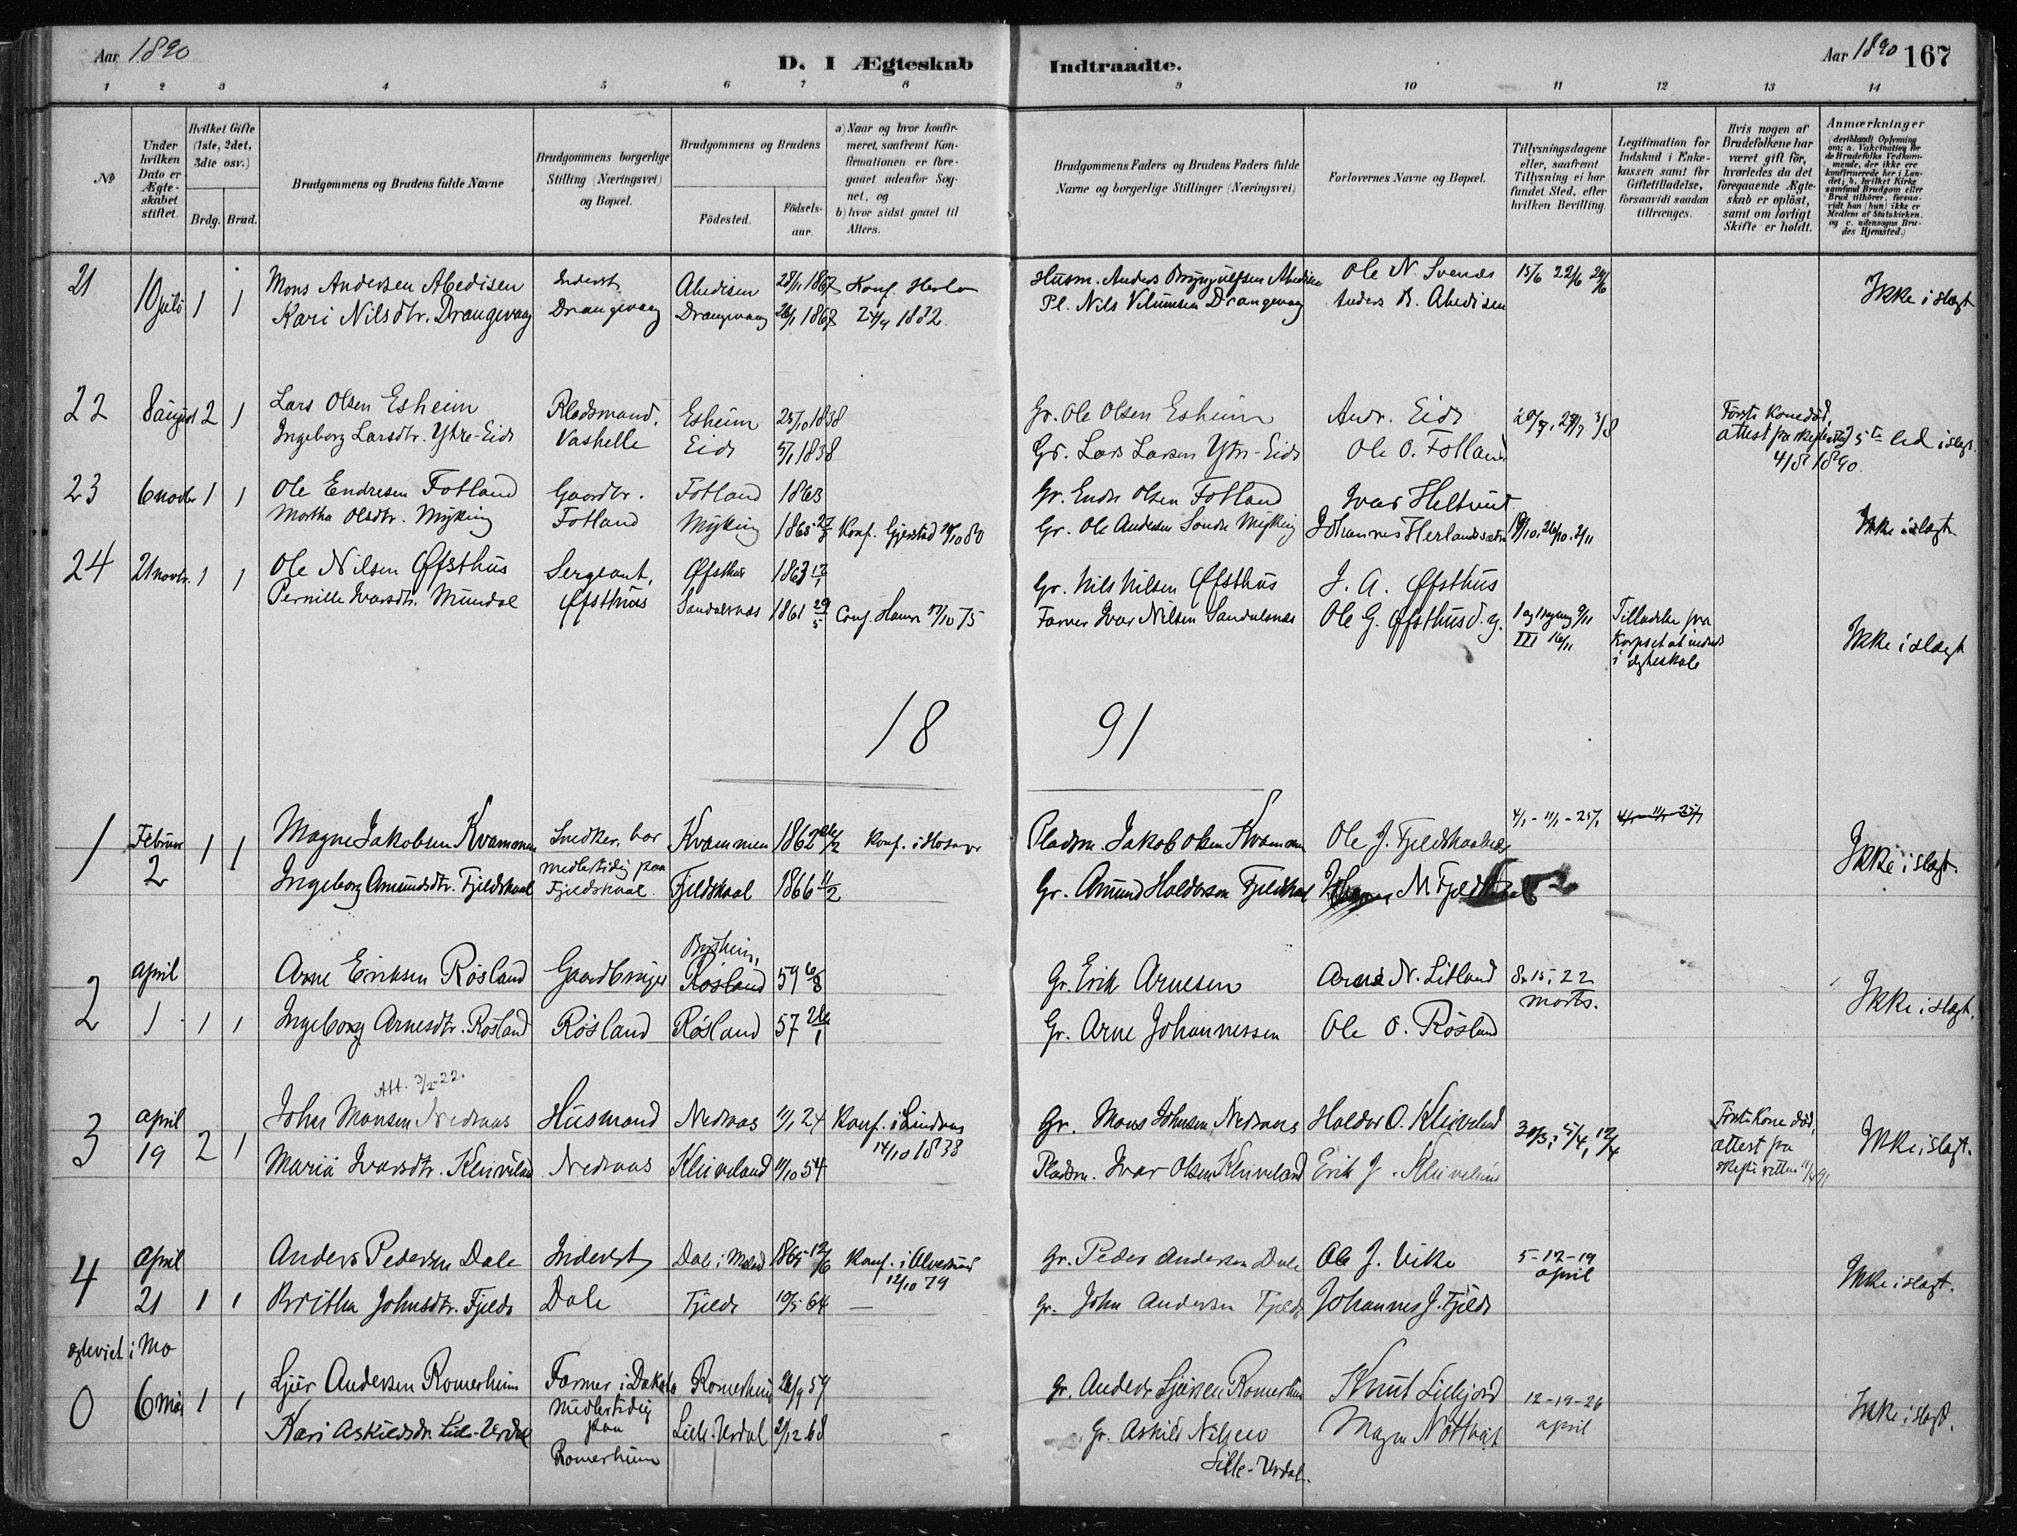 Aar 1890
D. I Ægteskab Indtraadte.
Aar 1890 167
1 2 3 4 5 6 7 8 9 10 11 12 13 14
No
Under hvilken Dato er Ægteskabet stiftet.
Hvilket Gifte (1ste, 2det, 3die osv.)
Brdg. Brud.
Brudgommens og Brudens fulde Navne
Brudgommens borgerlige Stilling (Næringsvei) og Bopæl.
Brudgommens og Brudens
Fødested.
Fødselsaar.
a) Naar og hvor konfirmeret, saafremt Konfirmationen er foregaaet udenfor Sognet, og
b) hvor sidst gaaet til Alters.
Brudgommens Faders og Brudens Faders fulde Navne og borgerlige Stillinger (Næringsvei)
Forlovernes Navne og Bopæl.
Tillysningsdagene eller, saafremt Tillysning ei har fundet Sted, efter hvilken Bevilling.
Legitimation for Indskud i Enkekassen samt for Giftetilladelse, forsaavidt saadan tiltrænges.
Hvis nogen af Brudefolkene har været gift før, hvorledes da det foregaaende Ægteskab er opløst, samt om lovligt Skifte er holdt.
Anmærkninger (deriblandt Oplysning om: a. Vakcination for de Brudefolks Vedkommende, der ikke ere konfirmerede her i Landet; b. hvilket Kirkesamfund Brudgom eller Brud tilhører, forsaavidt han (hun) ikke er Medlem af Statskirken, og c. udensogns Brudes Hjemsted.)
21 10 juli 1 1 Mons Andersen Abedisen Inderst, Abedisen 28/11 1867 Konf. Herlø Husm. Anders Brynjulfsen Abedisen Ole N. Svenæs 15/6 22/6 29/6 Ikke i slægt
Kari Nilsdtr. Drangevaag Drangevaag Drangevaag 26/1 1867 24/9 1882. Pl. Nils Drangevaag Anders B. Abedisen
22 8 august 2 1 Lars Olsen Esheim Pladsmand, Esheim 25/10 1838 Gr. Ole Olsen Esheim Andr. Eide 20/7, 27/7 3/8 Første Kone død, attest fra skifteretten 4/8 1890. 5te led i slægt.
Ingeborg Larsdtr. Ytre-Eide Vashelle Eide 5/1 1838 Gr. Lars Larsen Ytre-Eide Ole O. Fotland
23 6 novbr 1 1 Ole Endresen Fotland Gaardbr. Fotland 1863 Gr. Endre Olsen Fotland Ivar Heltveit 19/10, 26/10, 2/11 Ikke i slægt
Martha Olsdtr. Myking Fotland Myking 1865 27/7 Konf. Gjerstad 10/10 80 Gr. Ole Andersen Søndre Myking Johannes
24 21 novbr. 1 1 Ole Nilsen Øfsthus Sergeant, Øfsthus 1863 12/1 Gr. Nils Nilsen Øfsthus J. A. Øfsthus
Pernille Ivarsdtr. Mundal Øfsthus Sandalsnæs 1861 29/5 Conf. Hamre 17/10 75 Farver Ivar Nilsen Sandalsnæs Ole G. Øfsthus d. y. I og II gang 9/11 III 16/11 Tilladelse fra Korpset at indtræde i ægteskab Ikke i slægt
18 91
1 Februar 2 1 1 Magne Jakobsen Kvammen Snedker, bor Kvammen 1862 26/2 Konf. i Hosanger Pladsm. Jakob Olsen Kvammen Ole J. Fjeldskaalnes 4/1 - 11/1 - 25/1 4/1 - 11/1 - 25/1 Ikke i slægt.
Ingeborg Amundsdtr. Fjeldskaal medlertidig paa Fjeldskaal. Fjeldskaal 1866 11/2 Gr. Amund Haldorsen Fjeldskaal M. Fjeldskaal
2 april 1 1 1 Arne Eriksen Røsland Gaardbruger Byrheim, Røsland 59 6/8 Gr. Erik Arnesen Arne N. Litland 8, 15, 22 marts. Ikke i slægt.
Ingeborg Arnesdtr. Røsland Røsland Røsland 57 26/1 Gr. Arne Johannessen Ole O. Røsland
Att. 3/2-22.
3 april 19 2 1 John Monsen Nedraas Husmand Nedraas 11/1 24 Konf. i Lindaas 14/10 1838 Gr. Mons Johnsen Nedraas Haldor O. Kleiveland 30/3, 5/4, 12/4 Første Kone død, attest fra skifteretten 11/4 91 Ikke i slægt.
Maria Ivarsdtr. Kleiveland Nedraas Kleiveland 11/10 54 Pladsm. Ivar Olsen Kleiveland Erik J. Kleiveland
4 april 21 1 1 Anders Pedersen Dale Inderst, Dale i Meland 1865 12/6 Konf. i Alversund 12/10 79 Gr. Peder Andersen Dale Ole J. Vikke 5-12-19 april Ikke i slægt.
Britha Johnsdtr. Fjelde Dale Fjelde 10/5 64 — Gr. John Andersen Fjelde Johannes J. Fjelde
egteviet i Mo
0 6 mai 1 1 Sjur Andersen Romerheim Farmer i Dakota Romerheim 26/9 59 Gr. Anders Sjursen Romerheim Knut Lilejord 12-19-26 april Ikke i slægt.
Kari Askildsdtr. Lille-Urdal Midlertidig paa Romerheim Lille-Urdal 21/12 68 Gr. Askild Nilsen Lille-Urdal. Magne Nøttveit